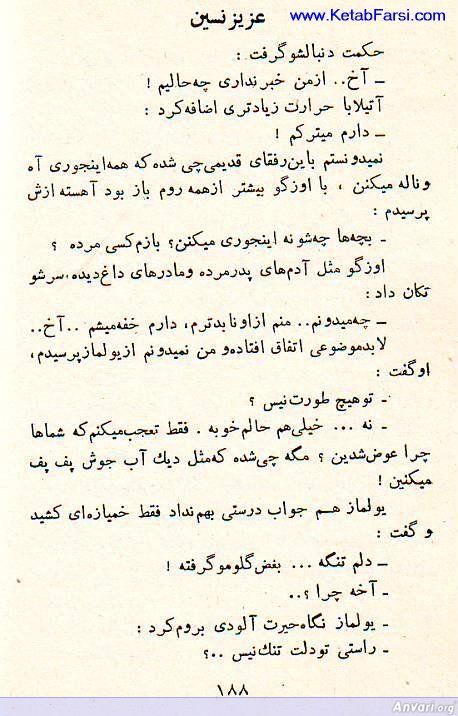 www.KetabFarsi.com
عزیز نسین
حکمت دنبالشو گرفت :
ــ آخ.. ازمن خبر نداری چه حالیم !
آتیلابا حرارت زیادتری اضافه کرد :
ــ دارم میترکم !
نمیدونستم باین رفقای قدیمی چی شده که همه اینجوری آه
و ناله میکنن ، با اوزگو بیشتر از همه روم باز بود آهسته ازش
پرسیدم :
ـ بچه‌ها چه‌شونه اینجوری میکنن؟ بازم کسی مرده ؟
اوزگو مثل آدم‌های پدرمرده و مادرهای داغ‌دیده، سرشو
تکان داد :
ــ چه میدونم.. منم از اونا بدترم، دارم خفه میشم ..آخ..
لابد موضوعی اتفاق افتاده و من نمیدونم از یولماز پرسیدم،
او گفت :
ـ تو هیچ طورت نیس ؟
ـ نه ... خیلی هم حالم خوبه . فقط تعجب میکنم که شماها
چرا عوض شدین ؟ مگه چی شده که مثل دیك آب جوش پف پف
میکنین !
یولماز هــم جواب درستی بهم نداد فقط خمیازه‌ای کشید
و گفت :
ــ دلم تنگه ... بغض گلومو گرفته !
ـ آخه چرا ؟..
ـ یولماز نگاه حیرت آلودی بروم کرد :
ـ راستی تو دلت تنك نیس ..؟
۱۸۸
Anvari.org